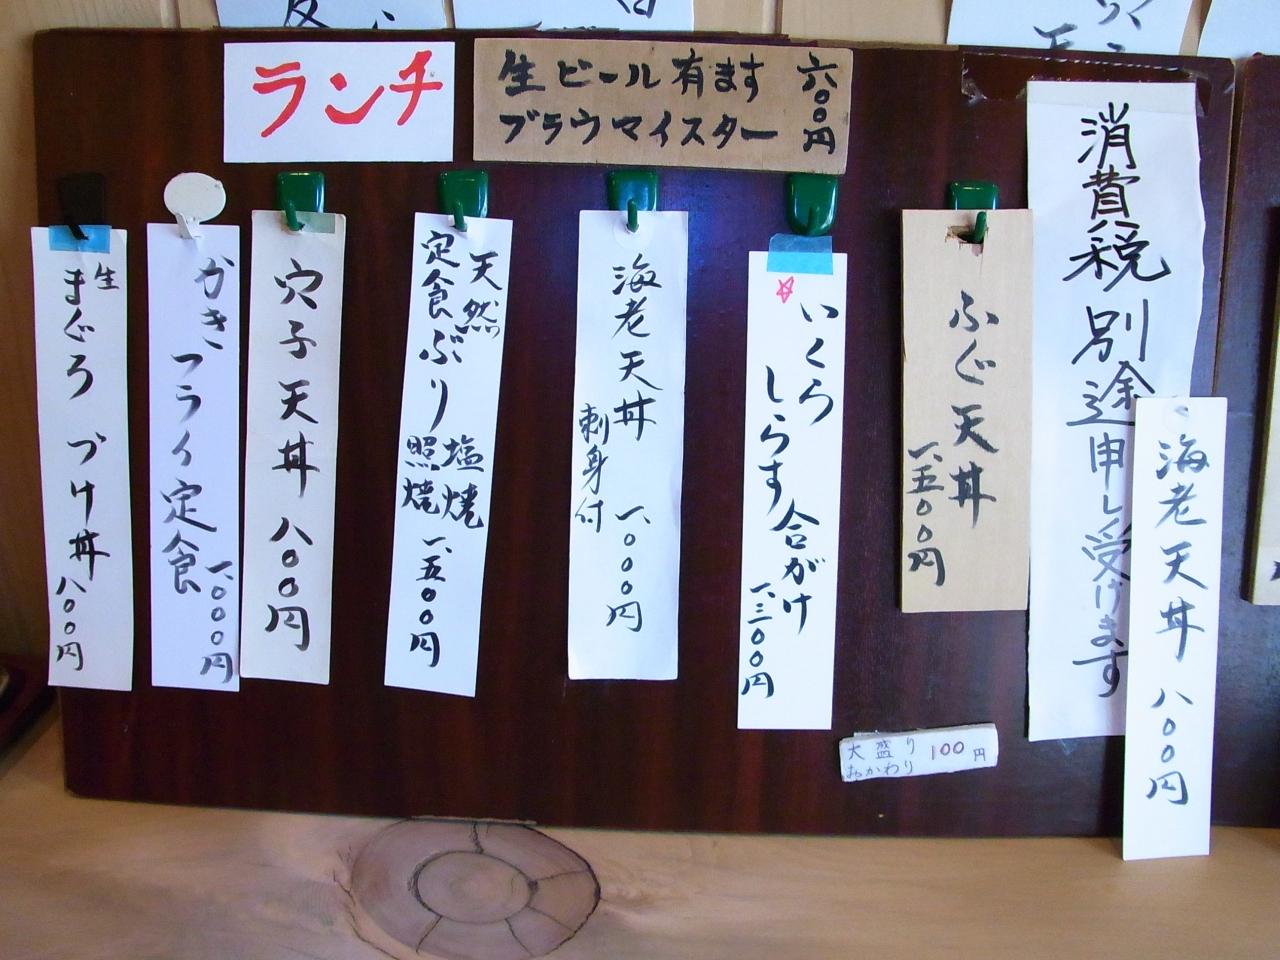 ランチ
生ビール有ます
ブラウマイスター
六〇〇円
消費税別途申し受けます
海老天丼 八〇〇円
ふぐ天丼
一、五〇〇円
いくら
しらす合がけ
一、三〇〇円
海老天丼 一、〇〇〇円
刺身付
天然
定食ぶり
塩焼
照焼
一、五〇〇円
穴子天丼 八〇〇円
かき
フライ定食
一、〇〇〇円
生
まぐろづけ丼 八〇〇円
大盛り
おかわり
100円